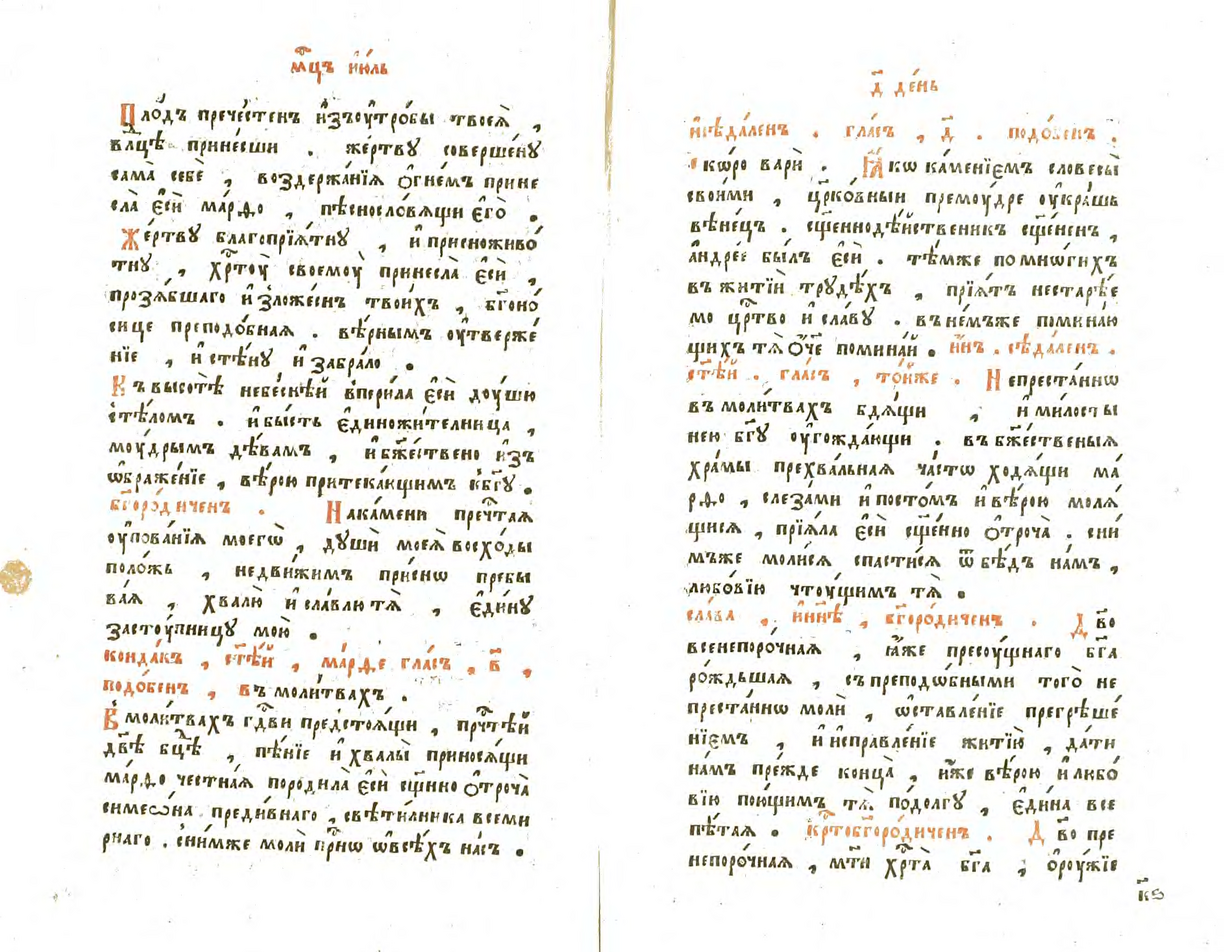 мц҃ъ ию́ль
Пло́дъ пречи́стенъ и҆зъ оу҆тро́бы твоея̀ ,
влⷣцѣ прине́сши . же́ртву соверше́ну
сама̀ себѐ , воздержа́нїѧ ѻ҆гне́мъ прине
сла̀ є҆сѝ ма́рѳо , пѣсносло́вѧщи є҆го̀ .
Же́ртву благопрїѧ́тну , и҆ присноживо́
тну , хрⷭ҇тоу̀ своемоу̀ принесла̀ є҆сѝ ,
прозѧ́бшаго и҆зъ ложе́снъ твои́хъ , бг҃оно́
сице преподо́бная . вѣ́рнымъ оу҆твержє́
нїе , и҆ стѣ́ну и҆ забра́ло .
Къ высотѣ̀ небе́снѣй впери́ла є҆сѝ доу́шю
с тѣ́ломъ . и҆ бы́сть є҆диножи́телница ,
моу́дрымъ дѣ́вамъ , и҆ бж҃ественое и҆зъ
ѡ҆браже́нїе , вѣ́рою притека́ющимъ к бг҃у .
бг҃оро́диченъ . На ка́мени пречⷭ҇тая
оу҆пова́нїѧ моегѡ̀ , душѝ моеѧ̀ восхо́ды
поло́жь , недви́жимъ при́снѡ пребы
ва́ѧ , хвалю̀ и҆ сла́влю тѧ̀ , є҆ди́ну
засто́упницу мою̀ .
конда́къ , ст҃ѣ́й , ма́рѳе гла́съ , в҃ ,
подо́бенъ , въ моли́твахъ .
В моли́твахъ гдⷭ҇ви предстоѧ́щи , прⷱ҇тѣй
дв҃ѣ бц҃ѣ , пѣ́нїе и҆ хвалы̀ приносѧ́щи
ма́рѳо че́стнаѧ породи́ла є҆сѝ сщ҃енно ѻ҆троча̀
симеѡ́на преди́внаго , свѣти́лника всеми́
рнаго . с ни́мже молѝ при́снѡ ѡ҆ всѣ́хъ на́съ .
д҃ де́нь
и҆ сѣда́ленъ . гла́съ , д҃ . подо́бенъ .
ско́ро варѝ . Ꙗ҆́кѡ ка́менїємъ словесы̀
свои́ми , цр҃ко́вныи премоу́дре оу҆кра́шь
вѣне́цъ . сщ҃еннодѣ́йственикъ сщ҃е́ненъ ,
а҆ндре́е бы́лъ є҆сѝ . тѣ́мже по мнѡ́гихъ
въ житїѝ труде́хъ , прїѧ́тъ нестарѣ́е
мо црⷭ҇тво и҆ сла́ву . въ не́мъже помина́ю
щихъ тѧ̀ ѻ҆́ч҃е помина́й . и҆́нъ . сѣда́ленъ .
ст҃ѣ́й . гла́съ , то́йже . Непреста́ннѡ
въ моли́твахъ бдѧ́щи , и҆ ми́лосты
нею бг҃у оу҆гожда́ющи . въ бж҃е́ственыѧ
хра́мы прехва́льная ча́стѡ ходѧ́щи ма́
рѳо , слеза́ми и҆ посто́мъ и҆ вѣ́рою молѧ́
щисѧ , прїѧ́ла є҆сѝ сщ҃е́нно ѻ҆троча̀ . с ни́
мъже моли́сѧ спасти́сѧ ѿ бѣ́дъ на́мъ ,
любо́вїю чтоу́щимъ тѧ̀ .
сла́ва , и҆ ны́нѣ , бг҃оро́диченъ . Дв҃о
всенепоро́чнаѧ , ꙗ҆́же пресоу́щнаго бг҃а
ро́ждьшаѧ , съ преподѡ́бными того̀ не
преста́ннѡ молѝ , ѡ҆ставле́нїе прегрѣше́
нїємъ , и҆ исправле́нїе житїю̀ , да́ти
на́мъ пре́жде конца̀ , и҆́же вѣ́рою и҆ любо́
вїю пою́щимъ тѧ̀ по до́лгу , є҆ди́на все
пѣ́тая . крⷭ҇тобг҃оро́диченъ . Дв҃о пре
непоро́чная , мт҃и хрⷭ҇та̀ бг҃а , ѻ҆роу́жїе
к҃ѕ